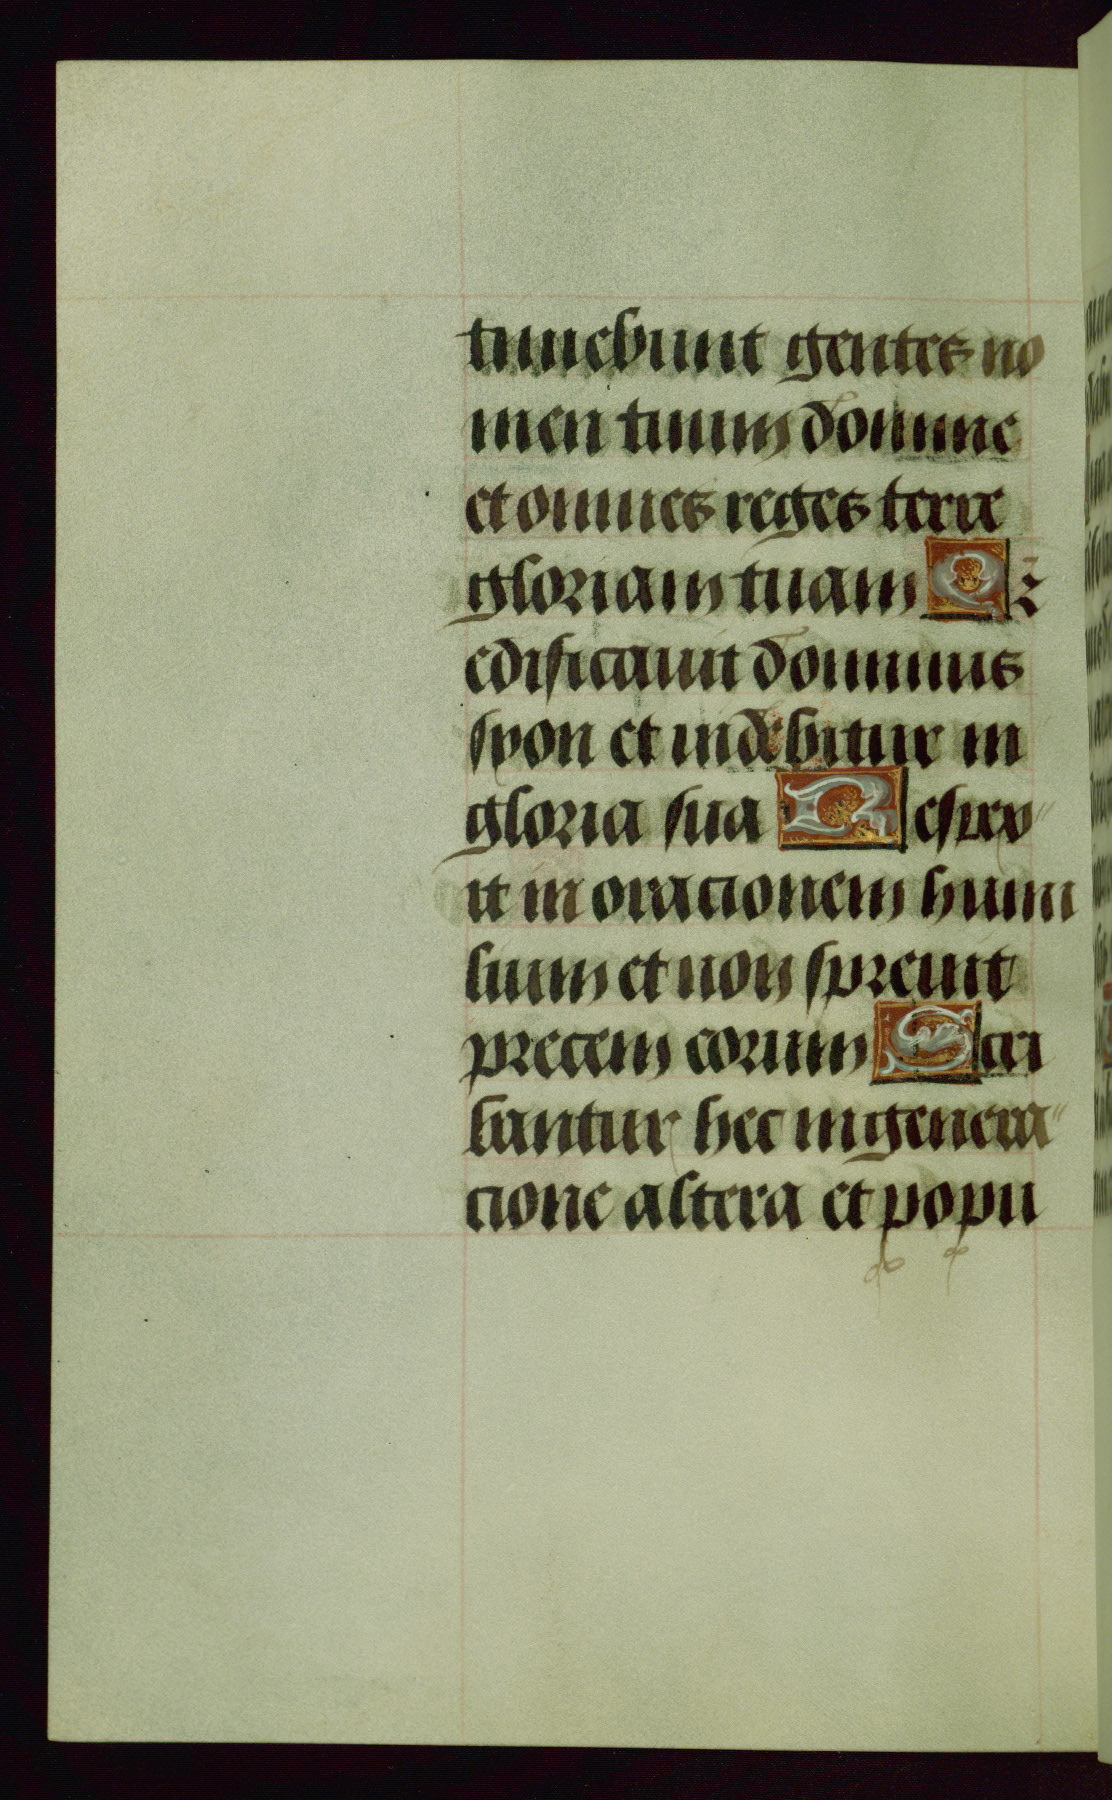 timebunt gentes no
men tuum domine
et omnes reges terre
gloriam tuam Qꝫ
edificauit dominus
syon et uidebitur in
gloria sua Respex
it in oracionem humi
lium et non spreuit
precem eorum Scri
bantur hec in genera
cione altera et popu